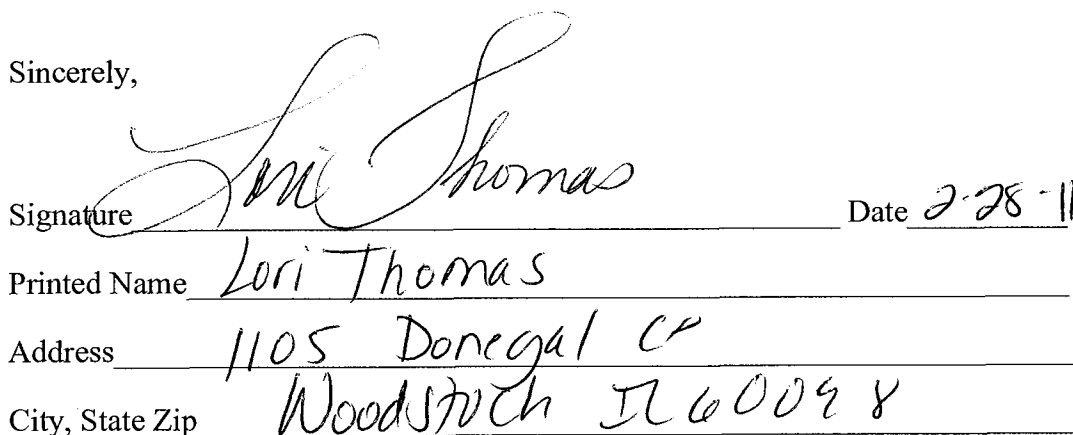 Sincerely,
Signature Lori Thomas Date 2-28-11
Printed Name Lori Thomas
Address 1105 Donegal Ct
City, State Zip Woodstock IL 60098